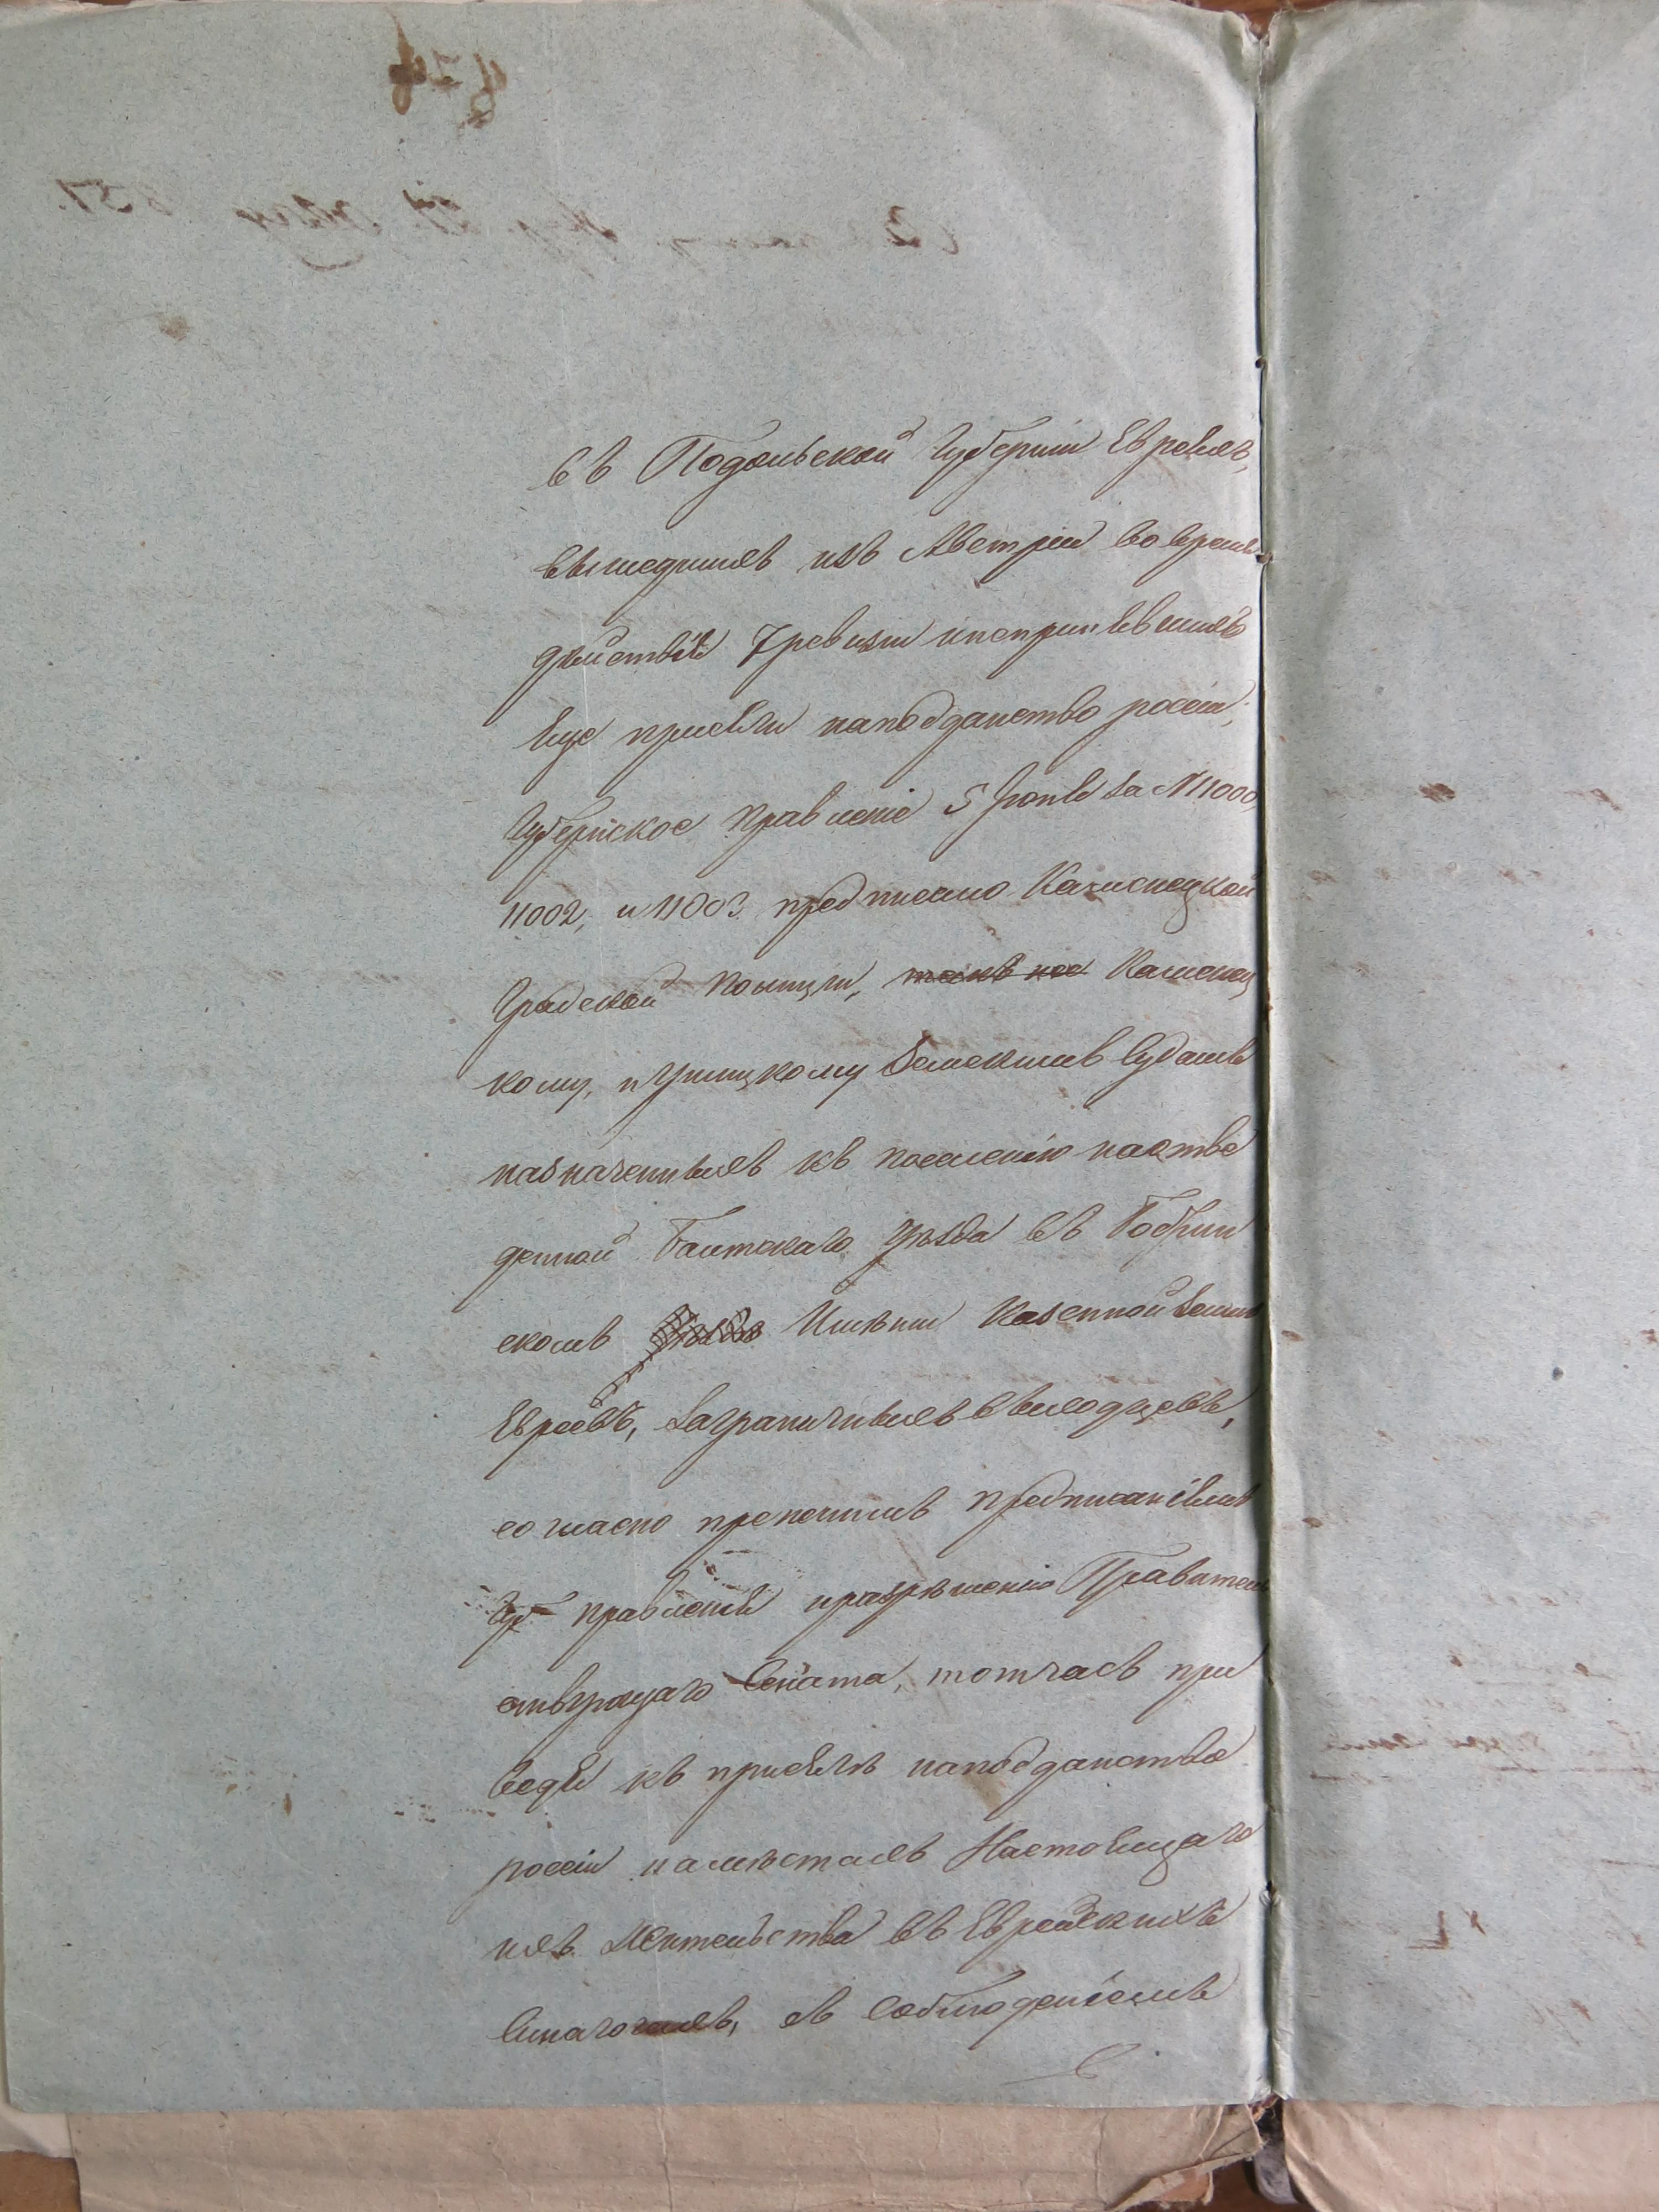 въ Подольской Губерніи Евреяхъ,
вышедшихъ изъ Австріи во время
действія 7 ревизіи инепринявшихъ
еще присяги наподданство россіи,
Губернское Правленіе 5 Іюня за №11000,
11002, и 11003 предписало Каменецкой
Градской Полиціи, такъ же Каменец
кому, и Ушицкому Земскимъ Судамъ
назначенныхъ къ поселенію наотве
денной Балтскаго уезда въ Бобрик
скомъ Уѣзде Имѣніи Казенной Земли
Евреевъ, Заграничныхъ выходцевъ,
согласно прежнимъ предписаніямъ
Губ Правленія иразрѣшенію Правитель
ствующаго Сената, тотчасъ при
весть къ присягѣ наподданство
россіи намѣстахъ Настоящаго
ихъ Жительства въ Еврейскихъ
Синагогахъ, съ соблюденіемъ